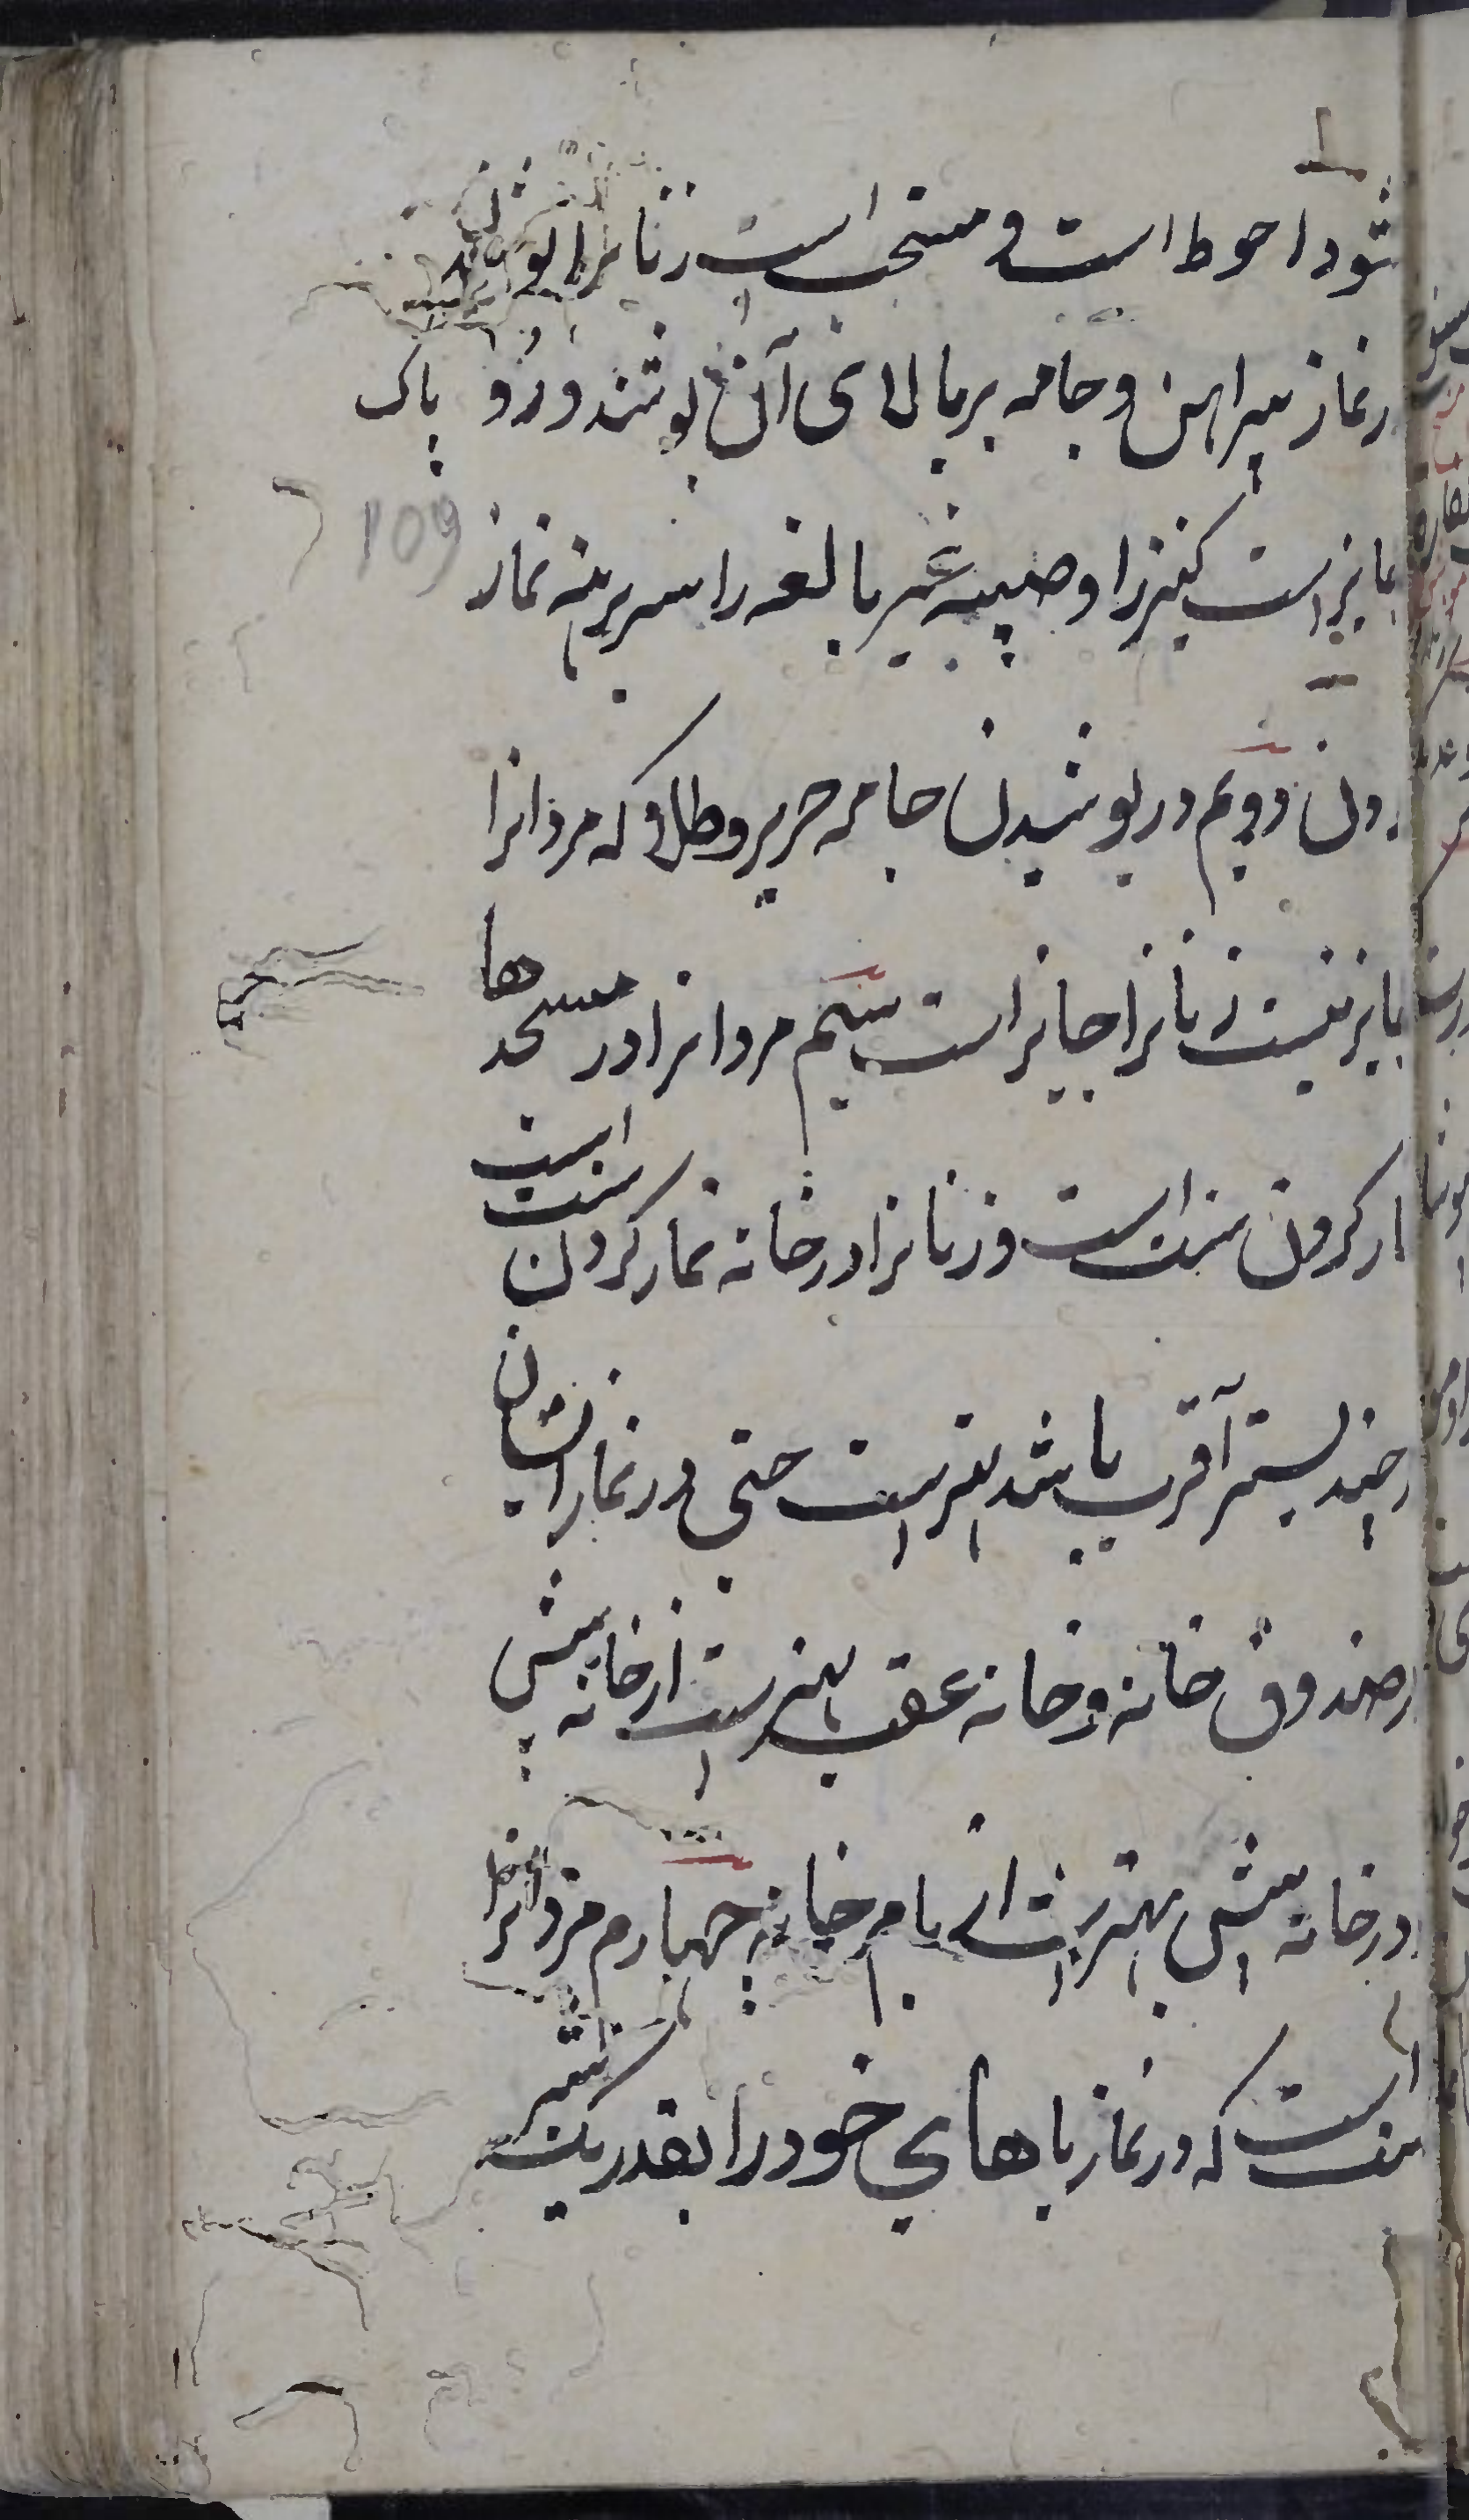 شود احوط است و مستحب است زنانرا
نماز پیراهن و جامه بر بالای آن پوشند و رو پاک
جایز است کنیز را و صبیه غیر بالغه را سر برهنه نماز
109
کردن دویم در پوشیدن جامه حریر و طلا که مردانرا
جایز نیست زنانرا جایز است سیم مردانرا در مسجدها
نماز کردن سنت است و زنانرا در خانه نماز کردن سنت است
هرچند بستر آقرب باشد بهتر است حتی در نماز ایشان
در صندوق خانه و خانه عقب بهتر است از خانه پیش
و در خانه پیش بهتر است از بام خانه چهارم مردانرا
سنت است که در نماز پاهای خود را بقدر یک شبر